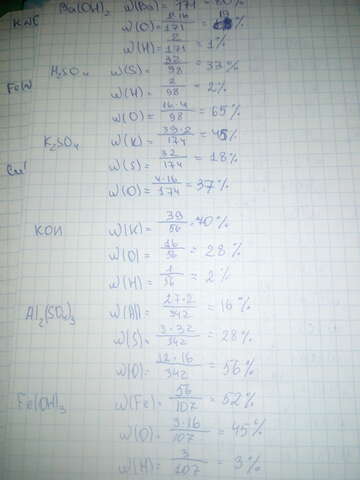 Ba(OH)₂ w(Ba) = 171 = 80%
w(O) = 2·16/171 = 19%
w(H) = 2/171 = 1%
H₂SO₄ w(S) = 32/98 = 33%
w(H) = 2/98 = 2%
w(O) = 16·4/98 = 65%
K₂SO₄ w(K) = 39·2/174 = 45%
w(S) = 32/174 = 18%
w(O) = 4·16/174 = 37%
KOH w(K) = 39/56 = 70%
w(O) = 16/56 = 28%
w(H) = 1/56 = 2%
Al₂(SO₄)₃ w(Al) = 27·2/342 = 16%
w(S) = 3·32/342 = 28%
w(O) = 12·16/342 = 56%
Fe(OH)₃ w(Fe) = 56/107 = 52%
w(O) = 3·16/107 = 45%
w(H) = 3/107 = 3%